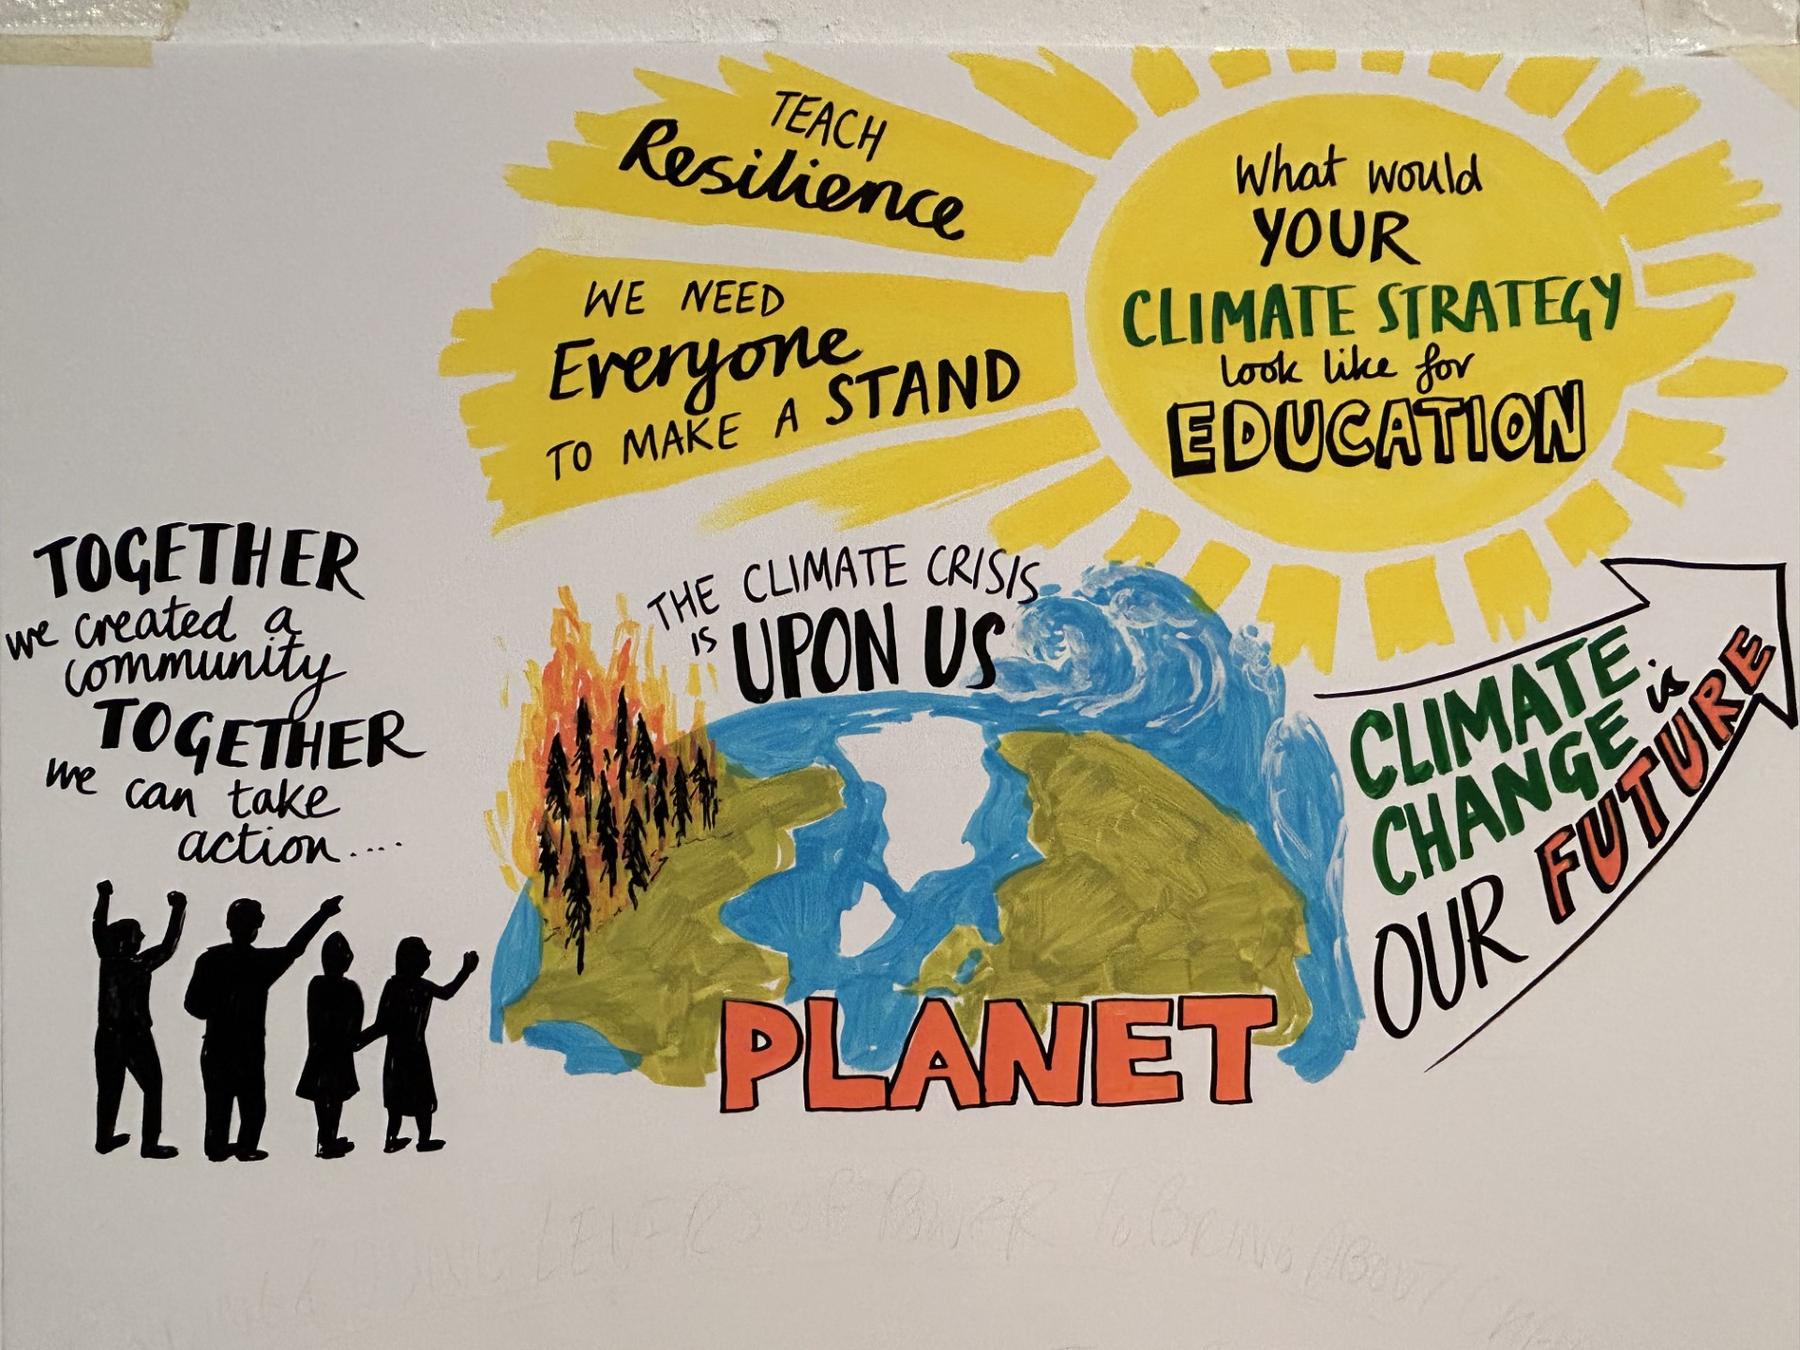 TEACH
Resilience
WE NEED
Everyone
TO MAKE A STAND
What would
YOUR
CLIMATE STRATEGY
look like for
EDUCATION
TOGETHER
we created a
community
TOGETHER
we can take
action....
THE CLIMATE CRISIS
is UPON US
PLANET
CLIMATE
CHANGE is
OUR FUTURE
LEVERS OF POWER TO BRING ABOUT